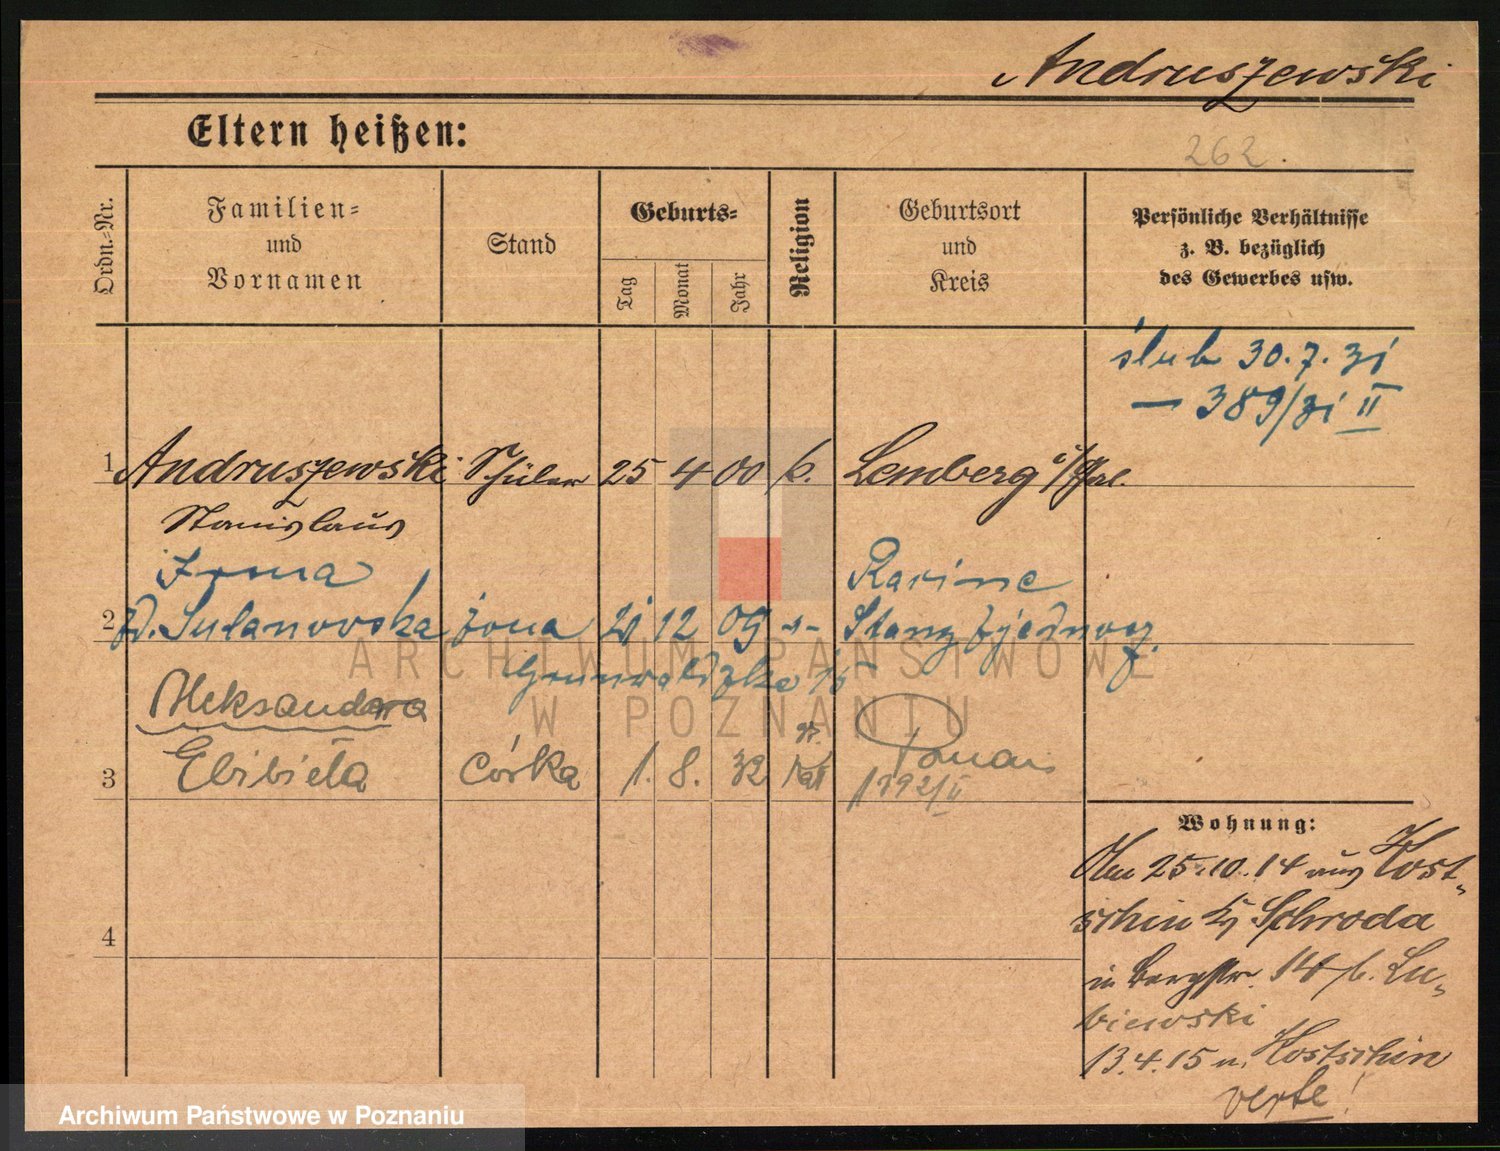 Andruszewski
Eltern heißen:
262.
Ordn.-Nr.
Familien-
und
Vornamen
Stand
Geburts-
Tag
Monat
Jahr
Religion
Geburtsort
und
Kreis
Persönliche Verhältnisse
z. B. bezüglich
des Gewerbes usw.
ślub 30.7.31
— 389/31 II
1 Andruszewski Schüler 25 4 00 k. Lemberg
Stanislaus
Irena
2 żona 21 12 09 -„- Stany Zjednocz.
Grunwaldzka 15
ARCHIWUM PAŃSTWOWE
W POZNANIU
Aleksandra
Elżbieta
3 córka 1. 8. 32 kat
1792/II
Wohnung:
25.10.14 aus Kost-
schin Kr Schroda
in Bergstr. 14 b. Lu-
biewski
13.4.15 n. Kostschin
verte!
4
Archiwum Państwowe w Poznaniu